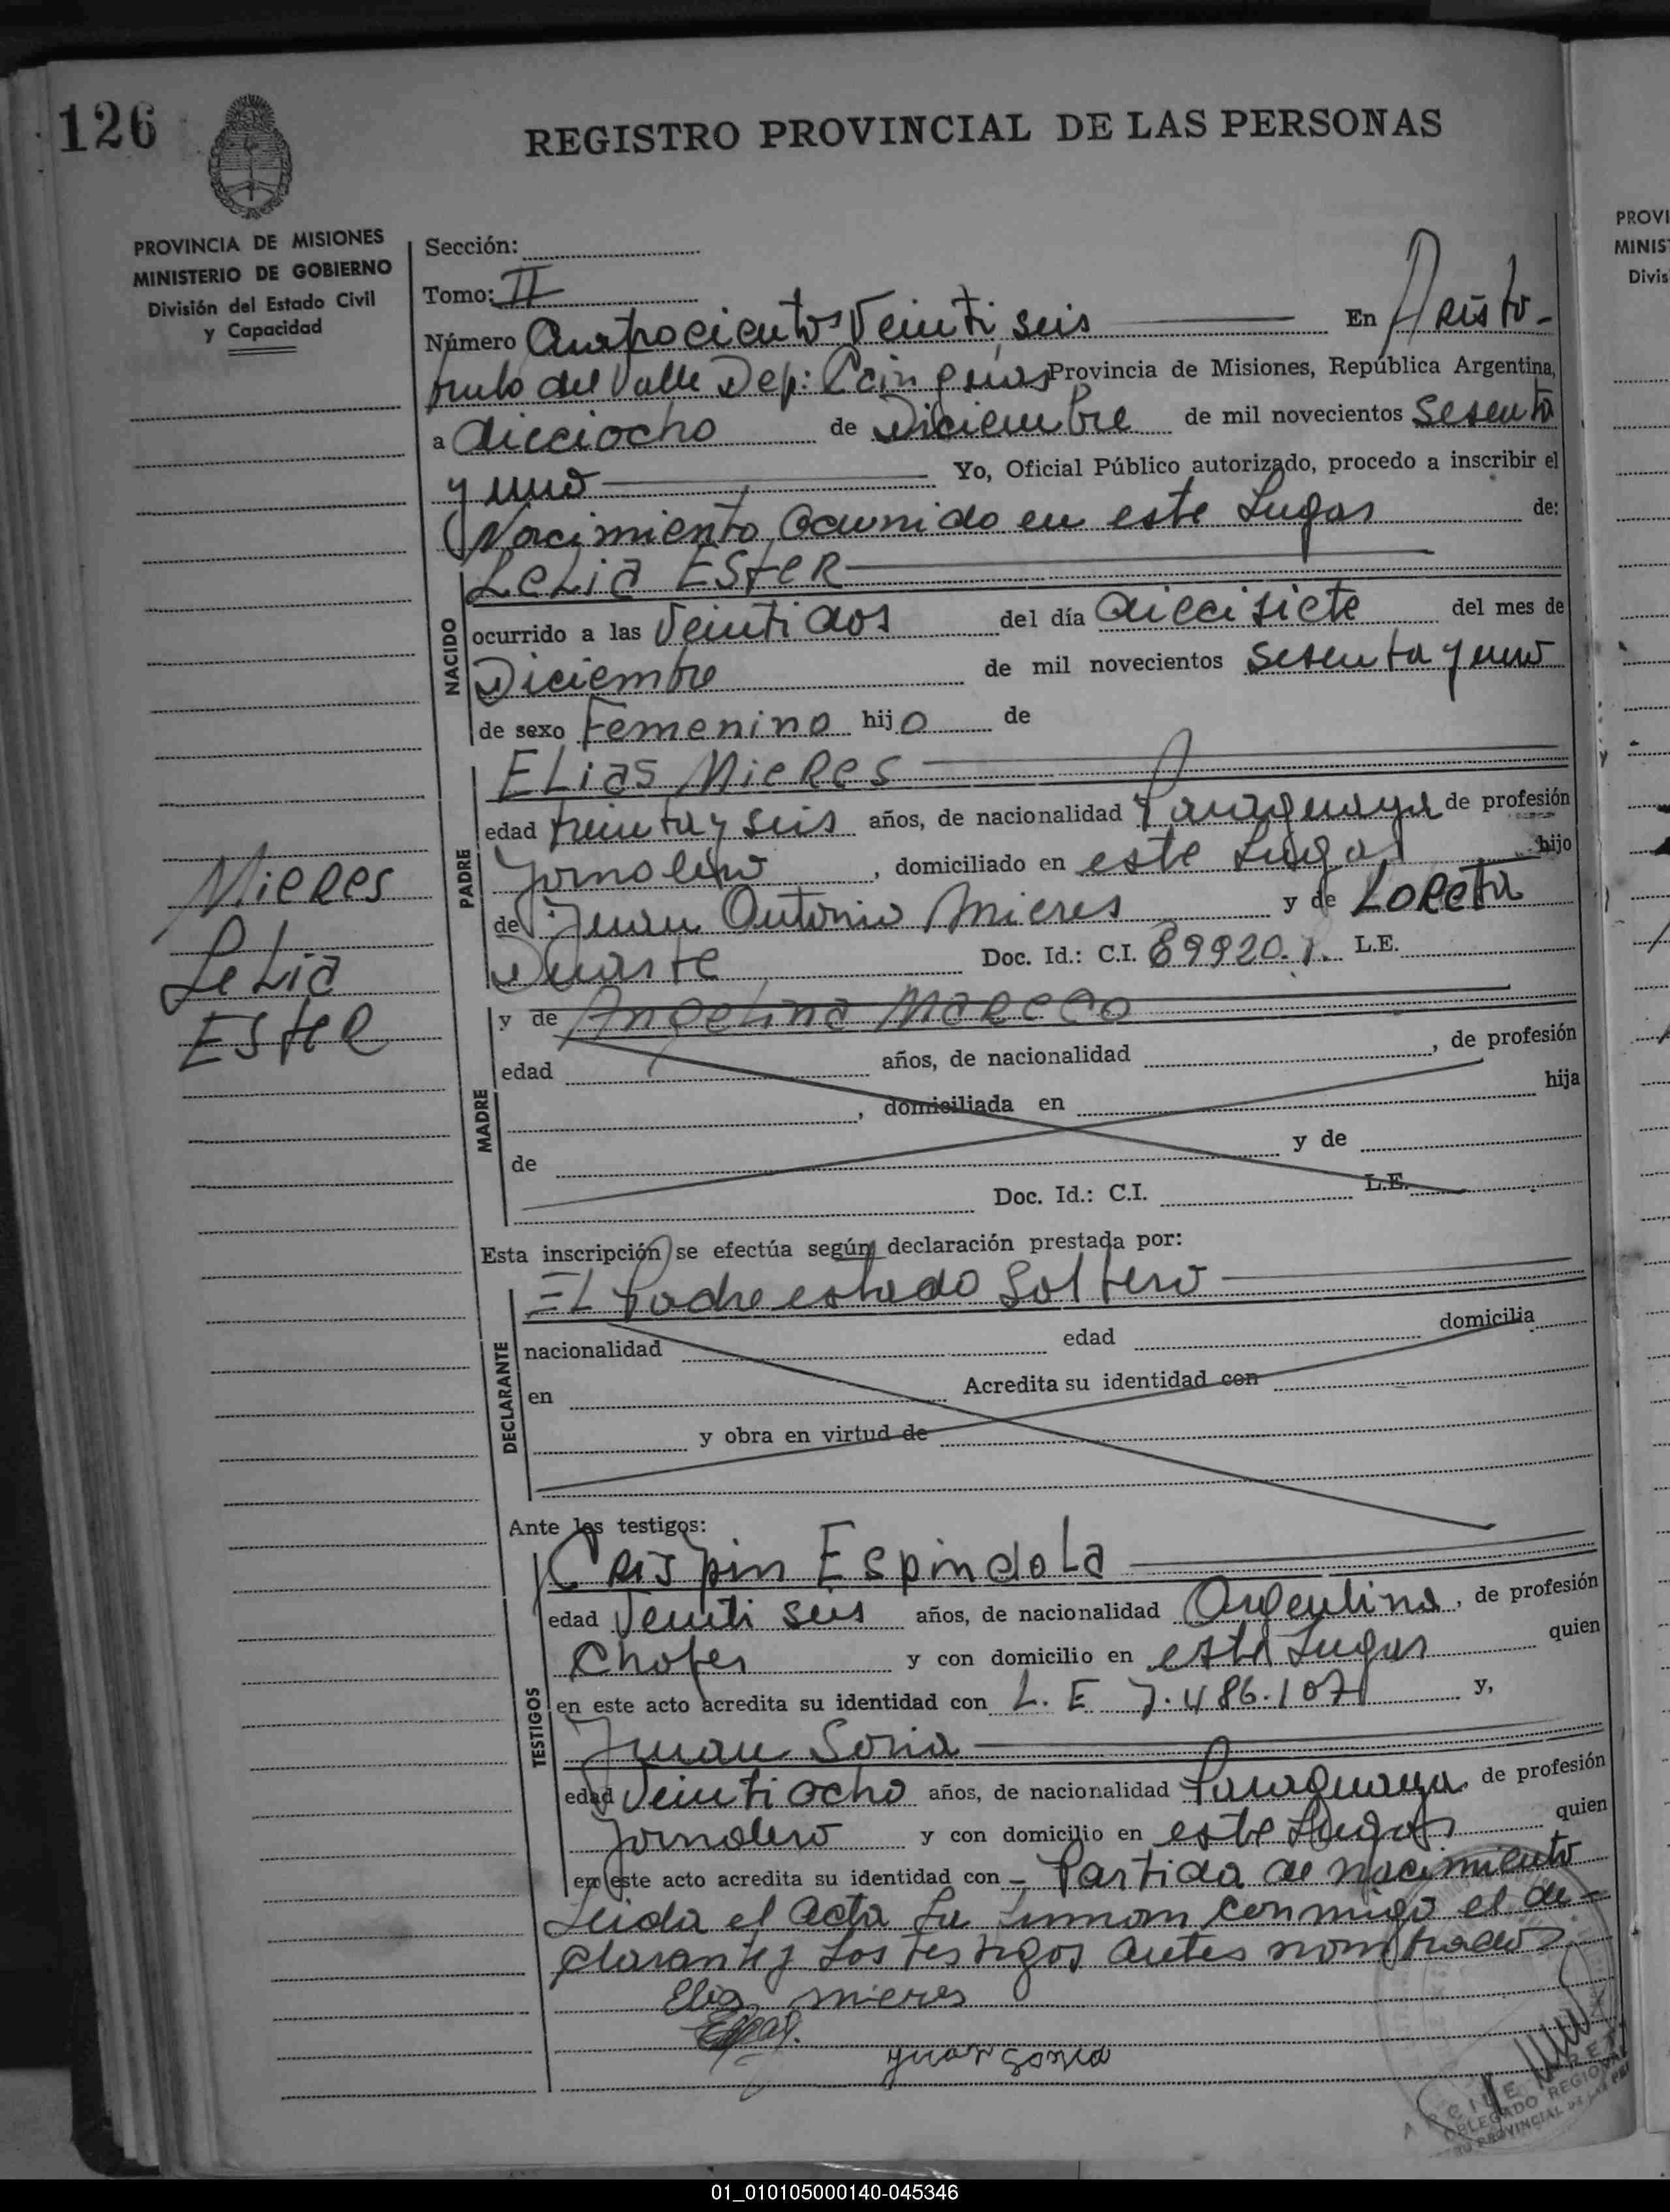 126
REGISTRO PROVINCIAL DE LAS PERSONAS
PROVINCIA DE MISIONES
MINISTERIO DE GOBIERNO
División del Estado Civil
y Capacidad
Sección:
Tomo: II
Número Cuatrocientos Veinti seis En Aristo-
bulo del Valle Dep: Cainguas Provincia de Misiones, República Argentina,
a dieciocho de Diciembre de mil novecientos Sesenta
y uno Yo, Oficial Público autorizado, procedo a inscribir el
Nacimiento Ocurrido en este Lugar de:
LeLia ESTER
NACIDO
ocurrido a las Veinti dos del día diecisiete del mes de
Diciembre de mil novecientos sesenta y uno
de sexo Femenino hijo de
ELias MieRes
PADRE
edad treinta y seis años, de nacionalidad Paraguaya de profesión
Jornalero, domiciliado en este Lugar hijo
de Juan Antonio Mieres y de LoReta
Duarte Doc. Id.: C.I. 89920. L.E.
Mieres
LeLia
ESTER
MADRE
y de AngeLina MaRecо
edad años, de nacionalidad , de profesión
, domiciliada en hija
de y de
Doc. Id.: C.I. L.E.
Esta inscripción se efectúa según declaración prestada por:
EL Padre estado Soltero
DECLARANTE
nacionalidad edad domicilia
en Acredita su identidad con
y obra en virtud de
Ante los testigos:
CRispin EspindoLa
TESTIGOS
edad Veinti seis años, de nacionalidad Argentina, de profesión
Chofer y con domicilio en este Lugar quien
en este acto acredita su identidad con L. E 7.486.107 y,
Juan Soria
edad Veinti ocho años, de nacionalidad Paraguaya, de profesión
Jornalero y con domicilio en este Lugar quien
en este acto acredita su identidad con - Partida de nacimiento
Leida el Acta La firman conmigo el de-
clarante y Los testigos antes nombrados
Elias mieres
juan soria
DELEGADO REGIONAL
PROVI
MINIS
Divis
01_010105000140-045346